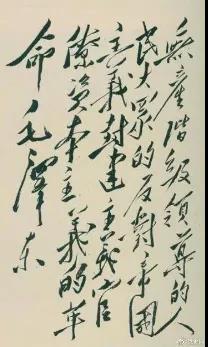 無產階級領導的人
民大眾的反對帝國
主義封建主義官
僚資本主義的革
命 毛澤東